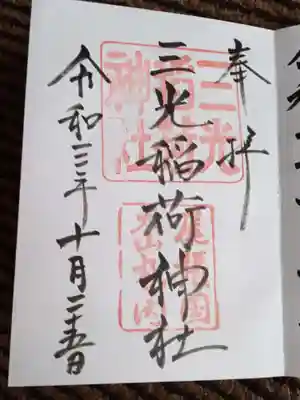 奉拝
三光稲荷神社
令和三年十月二十五日
三光
稲荷
神社